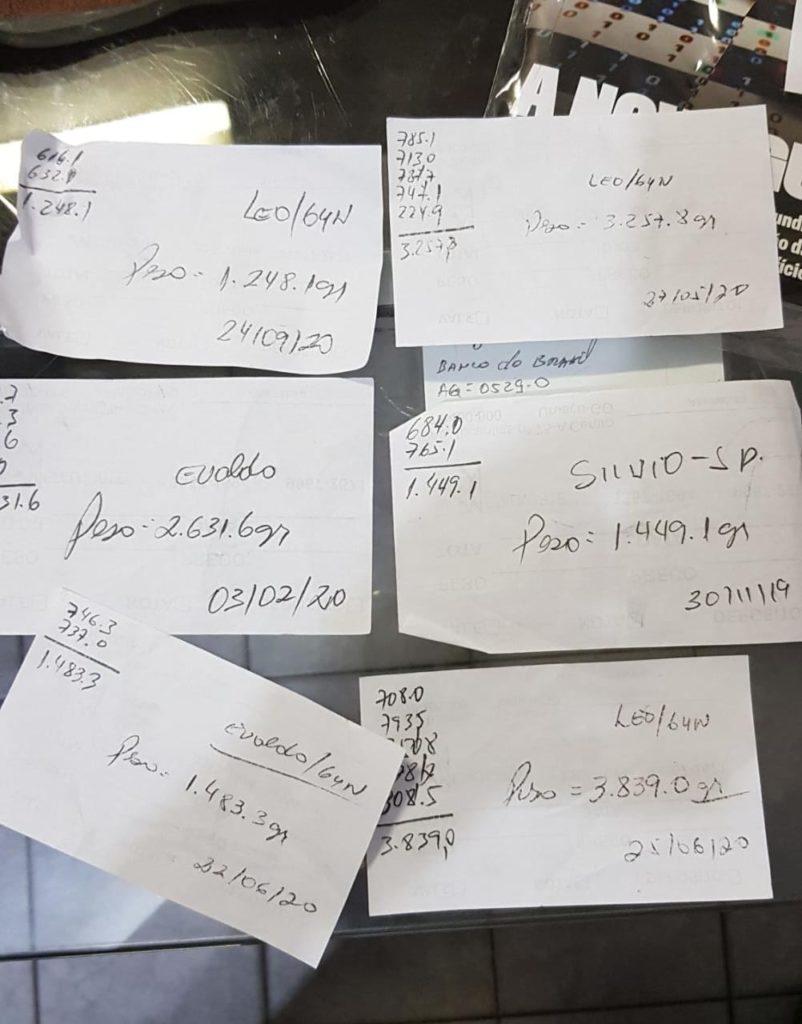 616.1
1.248.1
LEO/GYN
Peso = 1.248.1gr
24/09/20
785.1
713.0
787,7
747.1
224.9
3.257,8
LEO/GYN
Peso = 3.257.8gr
27/05/20
A NO
BANCO do BRASIL
AG = 0529-0
31.6
EVALDO
Peso = 2.631.6gr
03/02/20
684.0
765.1
1.449.1
SILVIO-SP.
Peso = 1.449.1gr
30/11/19
746.3
737.0
1.483.3
EVALDO/GYN
Peso =
1.483.3gr
22/06/20
708.0
793,5
308.5
3.839,0
LEO/GYN
Peso = 3.839.0gr
25/06/20